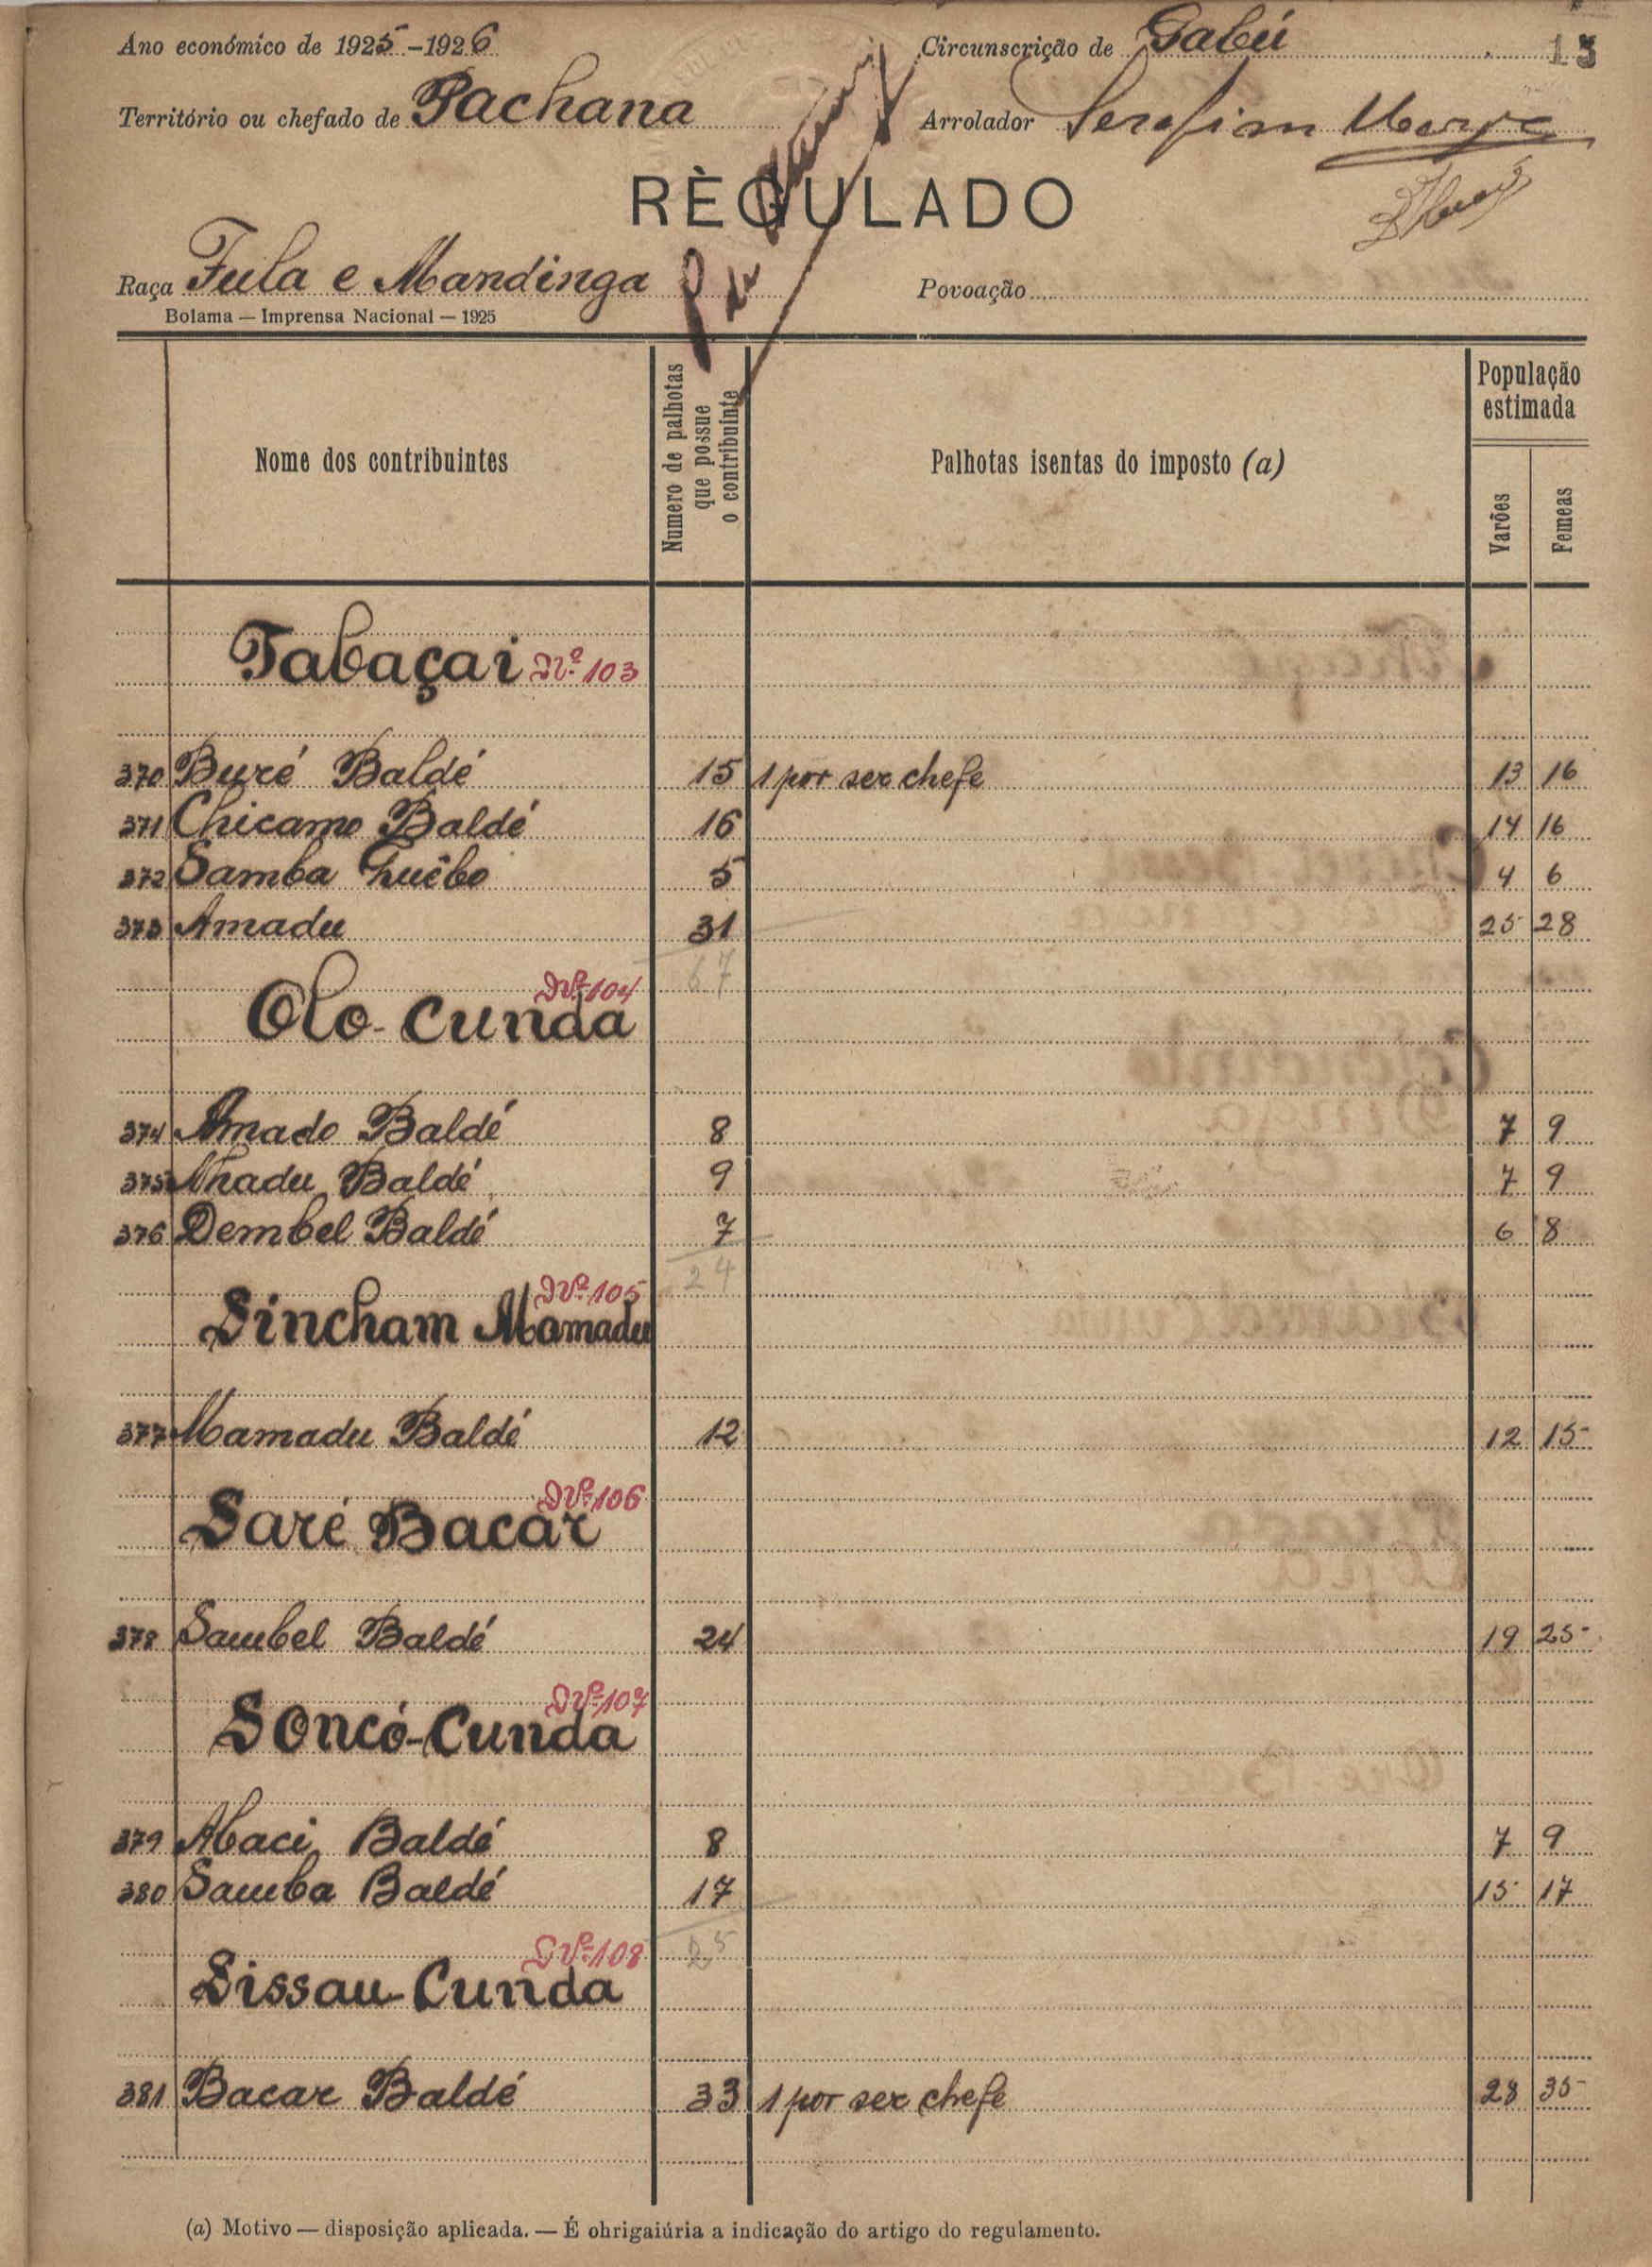 Ano económico de 1925-1926 Circunscrição de Gabú 13
Território ou chefado de Pachana Arrolador Serafim
RÈGULADO
Raça Fula e Mandinga Povoação
Bolama — Imprensa Nacional — 1925
Nome dos contribuintes
Numero de palhotas que possue o contribuinte
Palhotas isentas do imposto (a)
População estimada
Varões
Femeas
Tabaçai Nº 103
370 Buré Baldé 15 1 por ser chefe 13 16
371 Chicamo Baldé 16 14 16
372 Samba Guêbo 5 4 6
373 Amadu 31 25 28
67
Nº 104
Olo-Cunda
374 Amado Baldé 8 7 9
375 Nhadu Baldé 9 7 9
376 Dembel Baldé 7 6 8
24
Nº 105
Sincham Mamadu
377 Mamadu Baldé 12 12 15
Nº 106
Saré Bacar
378 Sambel Baldé 24 19 25
Nº 107
Soncó-Cunda
379 Maci Baldé 8 7 9
380 Samba Baldé 17 15 17
25
Nº 108
Sissau-Cunda
381 Bacar Baldé 33 1 por ser chefe 28 35
(a) Motivo — disposição aplicada. — É ohrigaiúria a indicação do artigo do regulamento.